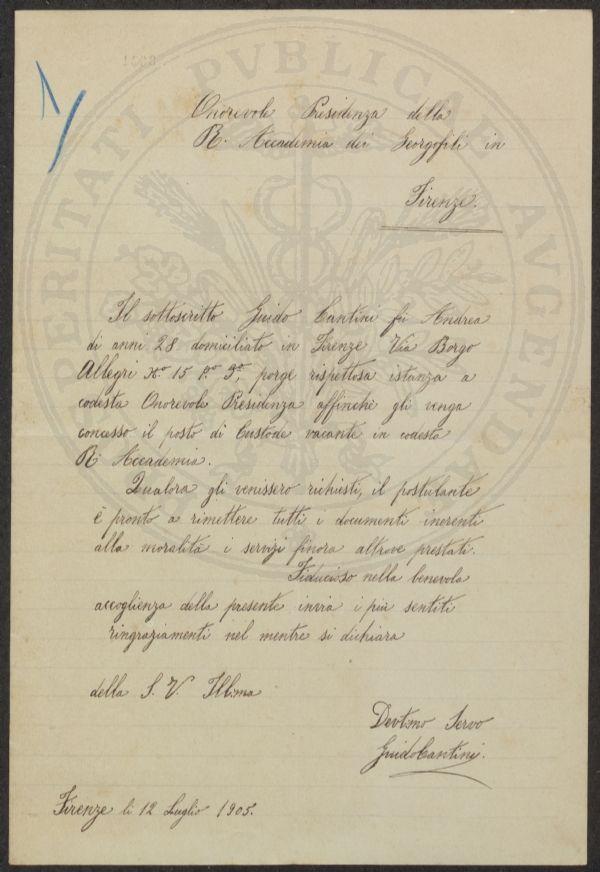 Onorevole Presidenza della
R. Accademia dei Georgofili in
Firenze.
Il sottoscritto Guido Cantini fu Andrea
di anni 28 domiciliato in Firenze Via Borgo
Allegri No 15 p.o porge rispettosa istanza a
codesta Onorevole Presidenza affinchè gli venga
concesso il posto di Custode vacante in codesta
R. Accademia.
Qualora gli venissero richiesti, il postulante
è pronto a rimettere tutti i documenti inerenti
alla moralità i servizi finora altrove prestati.
Fiducioso nella benevola
accoglienza della presente invia i più sentiti
ringraziamenti nel mentre si dichiara
della S. V. Ill.ma
Devt.mo Servo
Guido Cantini.
Firenze li 12 Luglio 1905.
PERITATI PVBLICAE AVGENDA